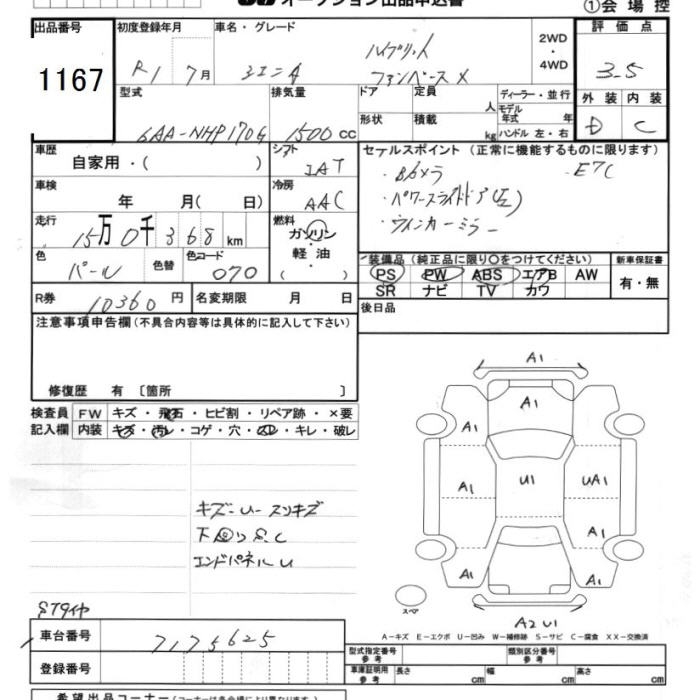 オークション出品申込書
①会場控
出品番号
1167
初度登録年月
R1 7月
車名・グレード
シエンタ
ハイブリット
ファンベースX
2WD
・
4WD
評価点
3.5
外装 内装
D C
型式
6AA-NHP170G
排気量
1500 cc
ドア
形状
定員 人
積載 kg
ディーラー・並行
モデル年式 年
ハンドル 左・右
車歴
自家用・( )
シフト
IAT
車検
年 月( 日)
冷房
AAC
走行
15万0千368km
燃料
ガソリン
軽油
・( )
色
パール
色替
色コード
070
R券 10360円
名変期限 月 日
セールスポイント (正常に機能するものに限ります)
・Bカメラ ・ETC
・パワースライドドア(左)
・ウインカーミラー
装備品(純正品に限り○をつけてください)
PS PW ABS エアB AW
SR ナビ TV カワ
新車保証書
有・無
後日品
注意事項申告欄(不具合内容等は具体的に記入して下さい)
修復歴 有 〔箇所 〕
検査員 FW キズ・飛石・ヒビ割・リペア跡・×要
記入欄 内装 キズ・汚レ・コゲ・穴・凹凸・キレ・破レ
キズ-U-スリキズ
下回りS.C
エンドパネルU
STタイヤ
車台番号 7175625
登録番号
A1
A1
A1
A1
U1
UA1
A1
A1
A1
A2 U1
スペア
A-キズ E-エクボ U-凹み W-補修跡 S-サビ C-腐食 XX-交換済
型式指定番号 参考
類別区分番号 参考
車庫証明用 参考 長さ cm 幅 cm 高さ cm
希望出品コーナー(コーナーは各会場により異なります)